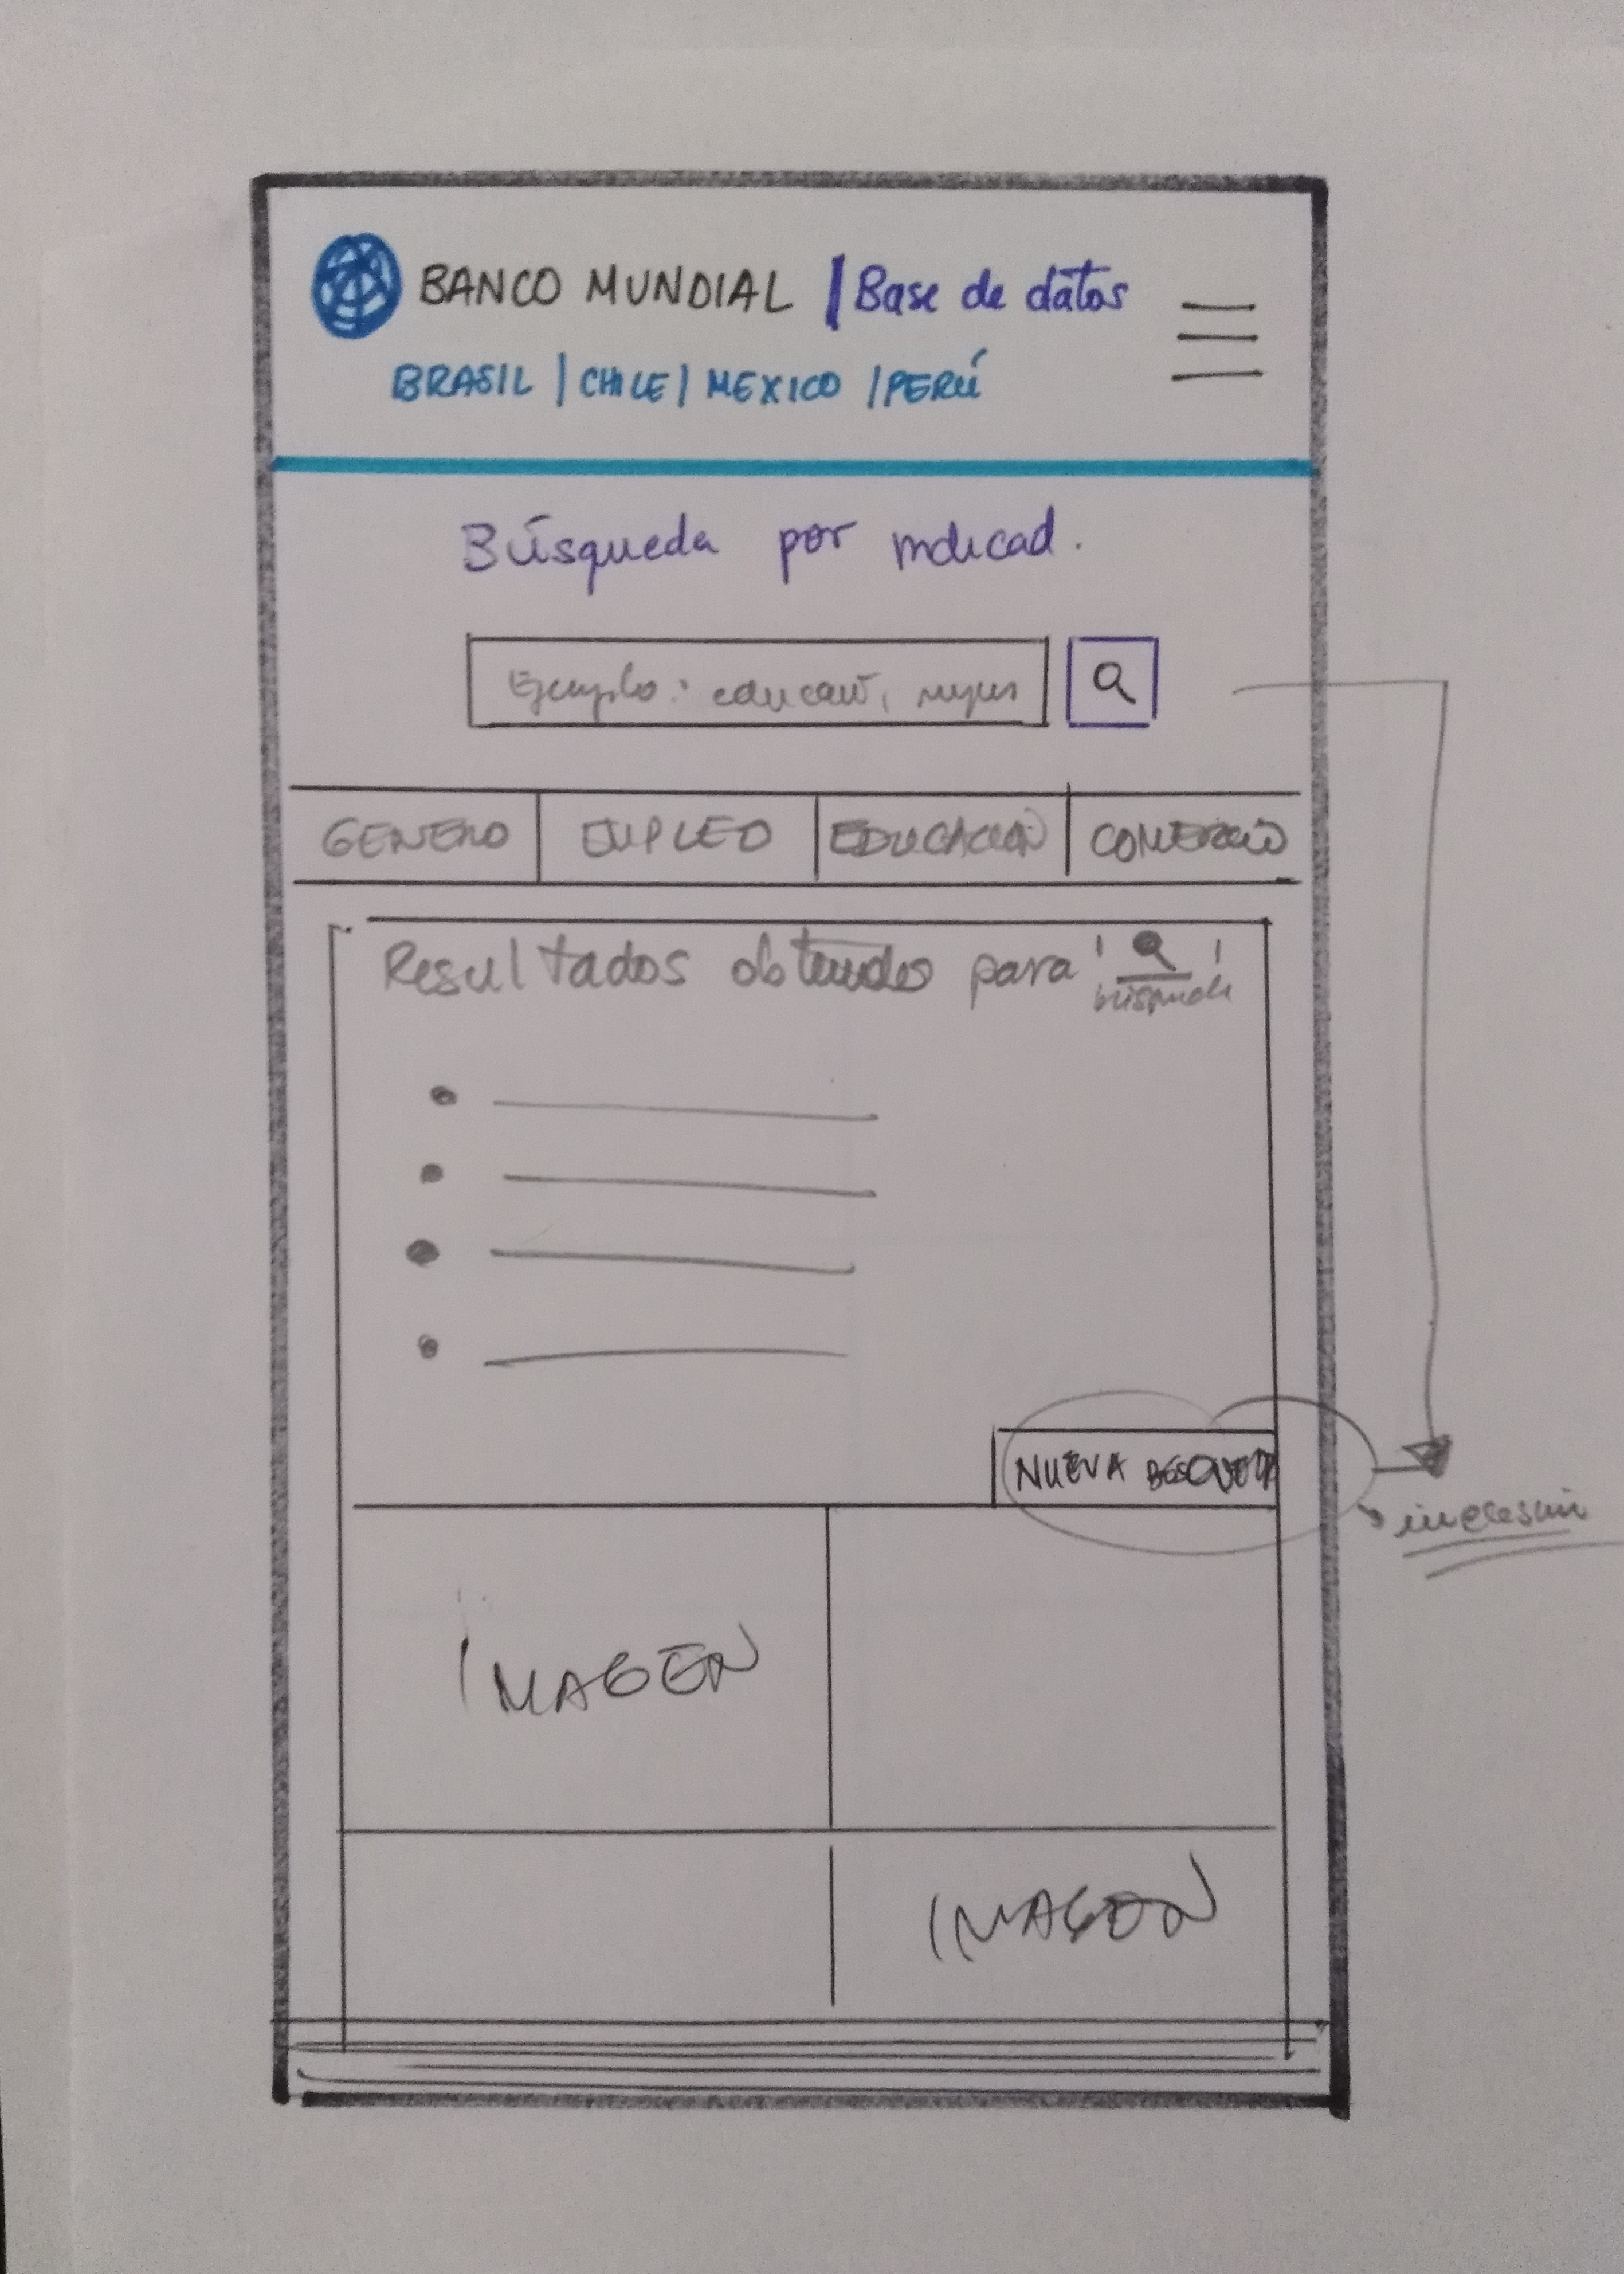 BANCO MUNDIAL | Base de datos
BRASIL | CHILE | MEXICO | PERÚ
Búsqueda por indicad.
Ejemplo: educaci, mujer
GENERO EMPLEO EDUCACIÓN COMERCIO
Resultados obtenidos para ' '
búsqueda
NUEVA BÚSQUEDA
IMAGEN
IMAGEN